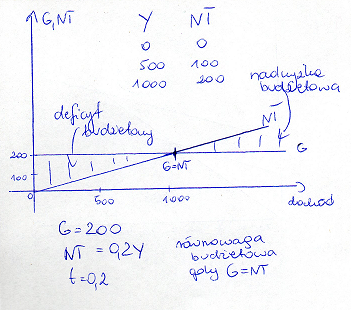 G, NT
Y NT
0 0
500 100
1000 200
nadwyżka
budżetowa
deficyt
budżetowy
NT
200
G
100
G=NT
0
500
1000
dochód
G = 200
NT = 0,2Y
t = 0,2
równowaga
budżetowa
gdy G=NT